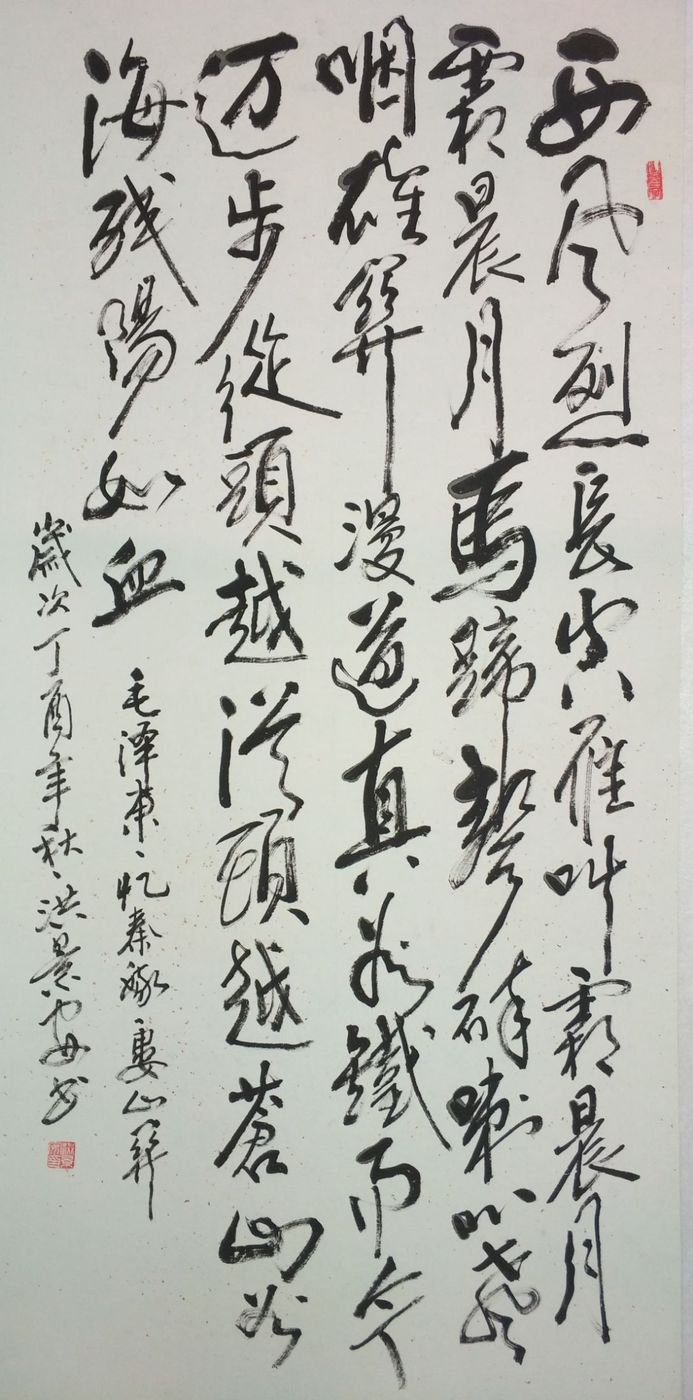 西风烈長空雁叫霜晨月
霜晨月馬蹄聲碎喇叭聲
咽雄関漫道真如鐵而今
迈步從頭越從頭越蒼山如
海残陽如血
毛澤東、忆秦娥、婁山関
歲次丁酉年秋、洪景安书